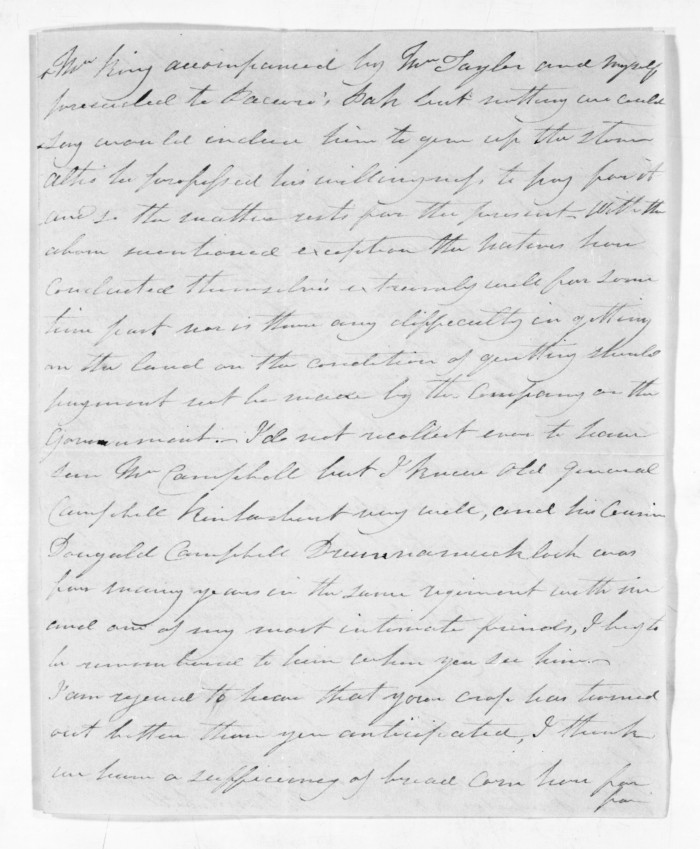 Mr King accompanied by Mr Taylor and myself
proceeded to Pah but nothing we could
say would induce him to give up the stone
altho he professed his willingness to pay for it
and so the matter rests for the present. With the
above mentioned exception the Natives have
conducted themselves extremely well for some
time past nor is there any difficulty in getting
on the land on the condition of quitting should
payment not be made by the Company or the
Government. I do not recollect ever to have
seen Mr Campbell but I knew old General
Campbell very well, and his Cousin
Dougald Campbell was
for many years in the same regiment with me
and one of my most intimate friends, I beg to
be remembered to him when you see him.
I am rejoiced to hear that your crop has turned
out better than you anticipated, I think
we have a sufficiency of bread corn here for